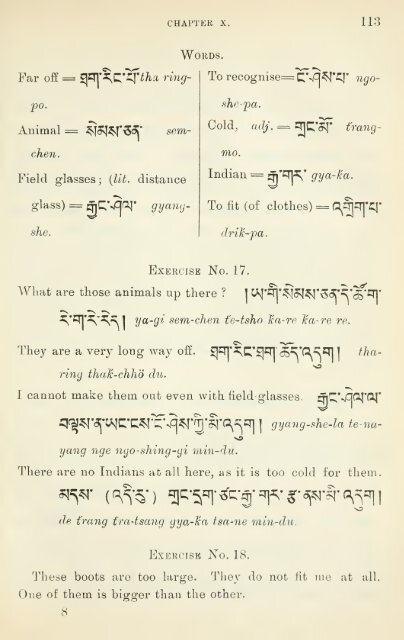 CHAPTER X. 113
WORDS.
Far off = ཐག་རིང་པོ་ tha ring-
po.
Animal = སེམས་ཅན་ sem-
chen.
Field glasses; (lit. distance
glass) = རྒྱང་ཤེལ་ gyang-
she.
To recognise = ངོ་ཤེས་པ་ ngo-
she-pa.
Cold, adj. = གྲང་མོ་ trang-
mo.
Indian = རྒྱ་གར་ gya-ka.
To fit (of clothes) = འགྲིག་པ་
drik-pa.
EXERCISE No. 17.
What are those animals up there ? །ཡ་གི་སེམས་ཅན་དེ་ཚོ་ག་
རེ་ག་རེ་རེད། ya-gi sem-chen te-tsho ka-re ka-re re.
They are a very long way off. ཐག་རིང་ཐག་ཆོད་འདུག། tha-
ring thak-chhö du.
I cannot make them out even with field-glasses. རྒྱང་ཤེལ་ལ་
བལྟས་ན་ཡང་ངས་ངོ་ཤེས་ཀྱི་མི་འདུག། gyang-she-la te-na-
yang nge ngo-shing-gi min-du.
There are no Indians at all here, as it is too cold for them.
མདས་ (འདི་རུ་) གྲང་དྲག་ཙང་རྒྱ་གར་རྩ་ནས་མི་འདུག།
de trang tra-tsang gya-ka tsa-ne min-du.
EXERCISE No. 18.
These boots are too large. They do not fit me at all.
One of them is bigger than the other.
8